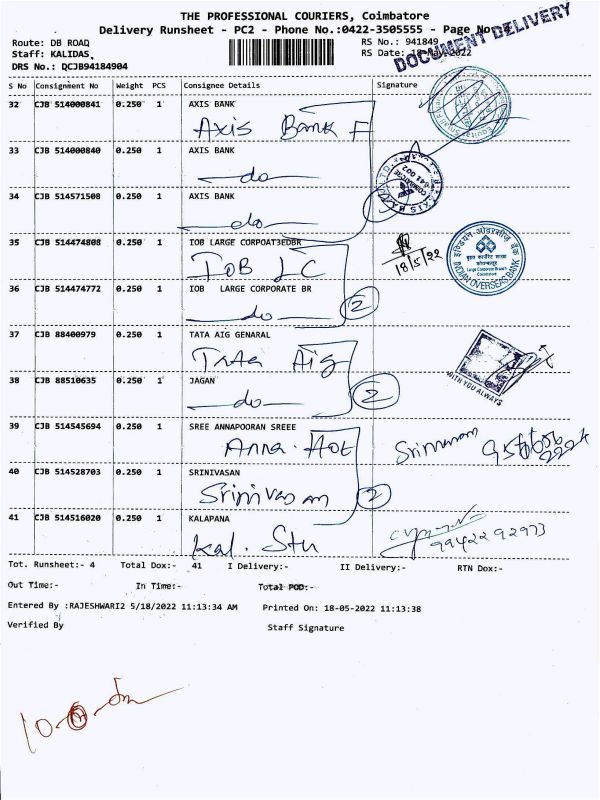 THE PROFESSIONAL COURIERS, Coimbatore
Delivery Runsheet - PC2 - Phone No.:0422-3505555 - Page No
DOCUMENT DELIVERY
Route: DB ROAD
RS No.: 941849
Staff: KALIDAS
RS Date: 18-May-2022
DRS No.: QCJB94184904
S No Consignment No Weight PCS Consignee Details Signature
32 CJB 514000841 0.250 1 AXIS BANK
Axis Bank F
33 CJB 514000840 0.250 1 AXIS BANK
do
34 CJB 514571508 0.250 1 AXIS BANK
do
35 CJB 514474808 0.250 1 IOB LARGE CORPOAT3EDBR
IOB LC
18/5/22
इण्डियन ओवरसीज़ बैंक
Large Corporate Branch
Coimbatore
INDIAN OVERSEAS BANK
36 CJB 514474772 0.250 1 IOB LARGE CORPORATE BR
do 2
37 CJB 88400979 0.250 1 TATA AIG GENARAL
Tata Aig
WITH YOU ALWAYS
38 CJB 88510635 0.250 1 JAGAN
do 2
39 CJB 514545694 0.250 1 SREE ANNAPOORAN SREEE
Anna. Hot
40 CJB 514528703 0.250 1 SRINIVASAN
Srinivasan 2
41 CJB 514516020 0.250 1 KALAPANA
Kal. Stu
9942292973
Tot. Runsheet:- 4 Total Dox:- 41 I Delivery:- II Delivery:- RTN Dox:-
Out Time:- In Time:- Total POD:-
Entered By :RAJESHWARI2 5/18/2022 11:13:34 AM Printed On: 18-05-2022 11:13:38
Verified By Staff Signature